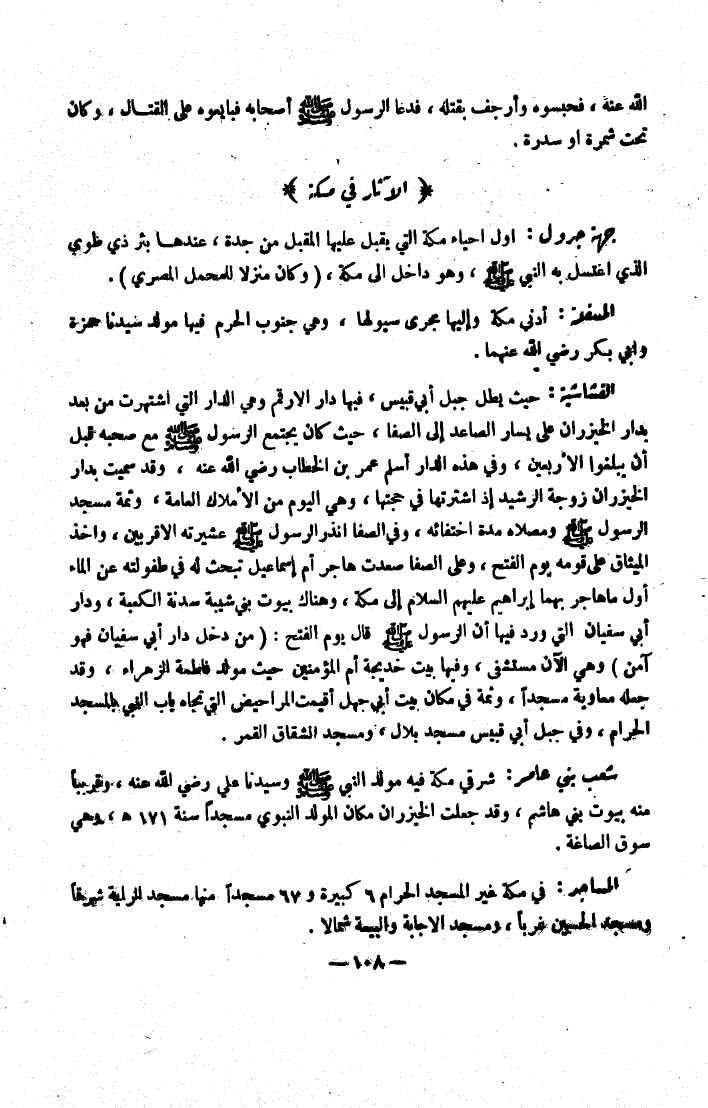 الله عنه ، فحبسوه وأرجف بقتله ، فدعا الرسول ﷺ أصحابه فبايعوه على القتال ، وكان
تحت شمرة او سدرة .
﴿ الآثار في مكة ﴾
جهة جرول : اول احياء مكة التي يقبل عليها المقبل من جدة ، عندها بئر ذي طوي
الذي اغتسل به النبي ﷺ ، وهو داخل الى مكة ، ( وكان منزلا للمحمل المصري ) .
المسفلة : أدنى مكة وإليها مجرى سيولها ، وهي جنوب الحرم فيها مولد سيدنا حمزة
وابي بكر رضي الله عنهما .
القشاشية : حيث يطل جبل أبي قبيس ، فيها دار الارقم وهي الدار التي اشتهرت من بعد
بدار الخيزران على يسار الصاعد إلى الصفا ، حيث كان يجتمع الرسول ﷺ مع صحبه قبل
أن يبلغوا الأربعين ، وفي هذه الدار أسلم عمر بن الخطاب رضي الله عنه ، وقد سميت بدار
الخيزران زوجة الرشيد إذ اشترتها في حجتها ، وهي اليوم من الأملاك العامة ، وثمة مسجد
الرسول ﷺ ومصلاه مدة اختفائه ، وفي الصفا انذر الرسول ﷺ عشيرته الاقربين ، واخذ
الميثاق على قومه يوم الفتح ، وعلى الصفا صعدت هاجر أم إسماعيل تبحث له في طفولته عن الماء
أول ماهاجر بهما إبراهيم عليهم السلام إلى مكة ، وهناك بيوت بني شيبة سدنة الكعبة ، ودار
أبي سفيان التي ورد فيها أن الرسول ﷺ قال يوم الفتح : ( من دخل دار أبي سفيان فهو
آمن ) وهي الآن مستشفى ، وفيها بيت خديجة أم المؤمنين حيث مولد فاطمة الزهراء ، وقد
جعله معاوية مسجداً ، وثمة في مكان بيت أبي جهل أقيمت المراحيض التي تجاه باب النبي بالمسجد
الحرام ، وفي جبل أبي قبيس مسجد بلال ، ومسجد انشقاق القمر .
شعب بني عامر : شرقي مكة فيه مولد النبي ﷺ وسيدنا علي رضي الله عنه ، وقريباً
منه بيوت بني هاشم ، وقد جعلت الخيزران مكان المولد النبوي مسجداً سنة ١٧١ ه ، وهي
سوق الصاغة .
المساجد : في مكة غير المسجد الحرام ٦ كبيرة و ٦٧ مسجداً منها مسجد الراية شرقاً
ومسجد الحسين غرباً ، ومسجد الاجابة والبيعة شمالا .
— ١٠٨ —